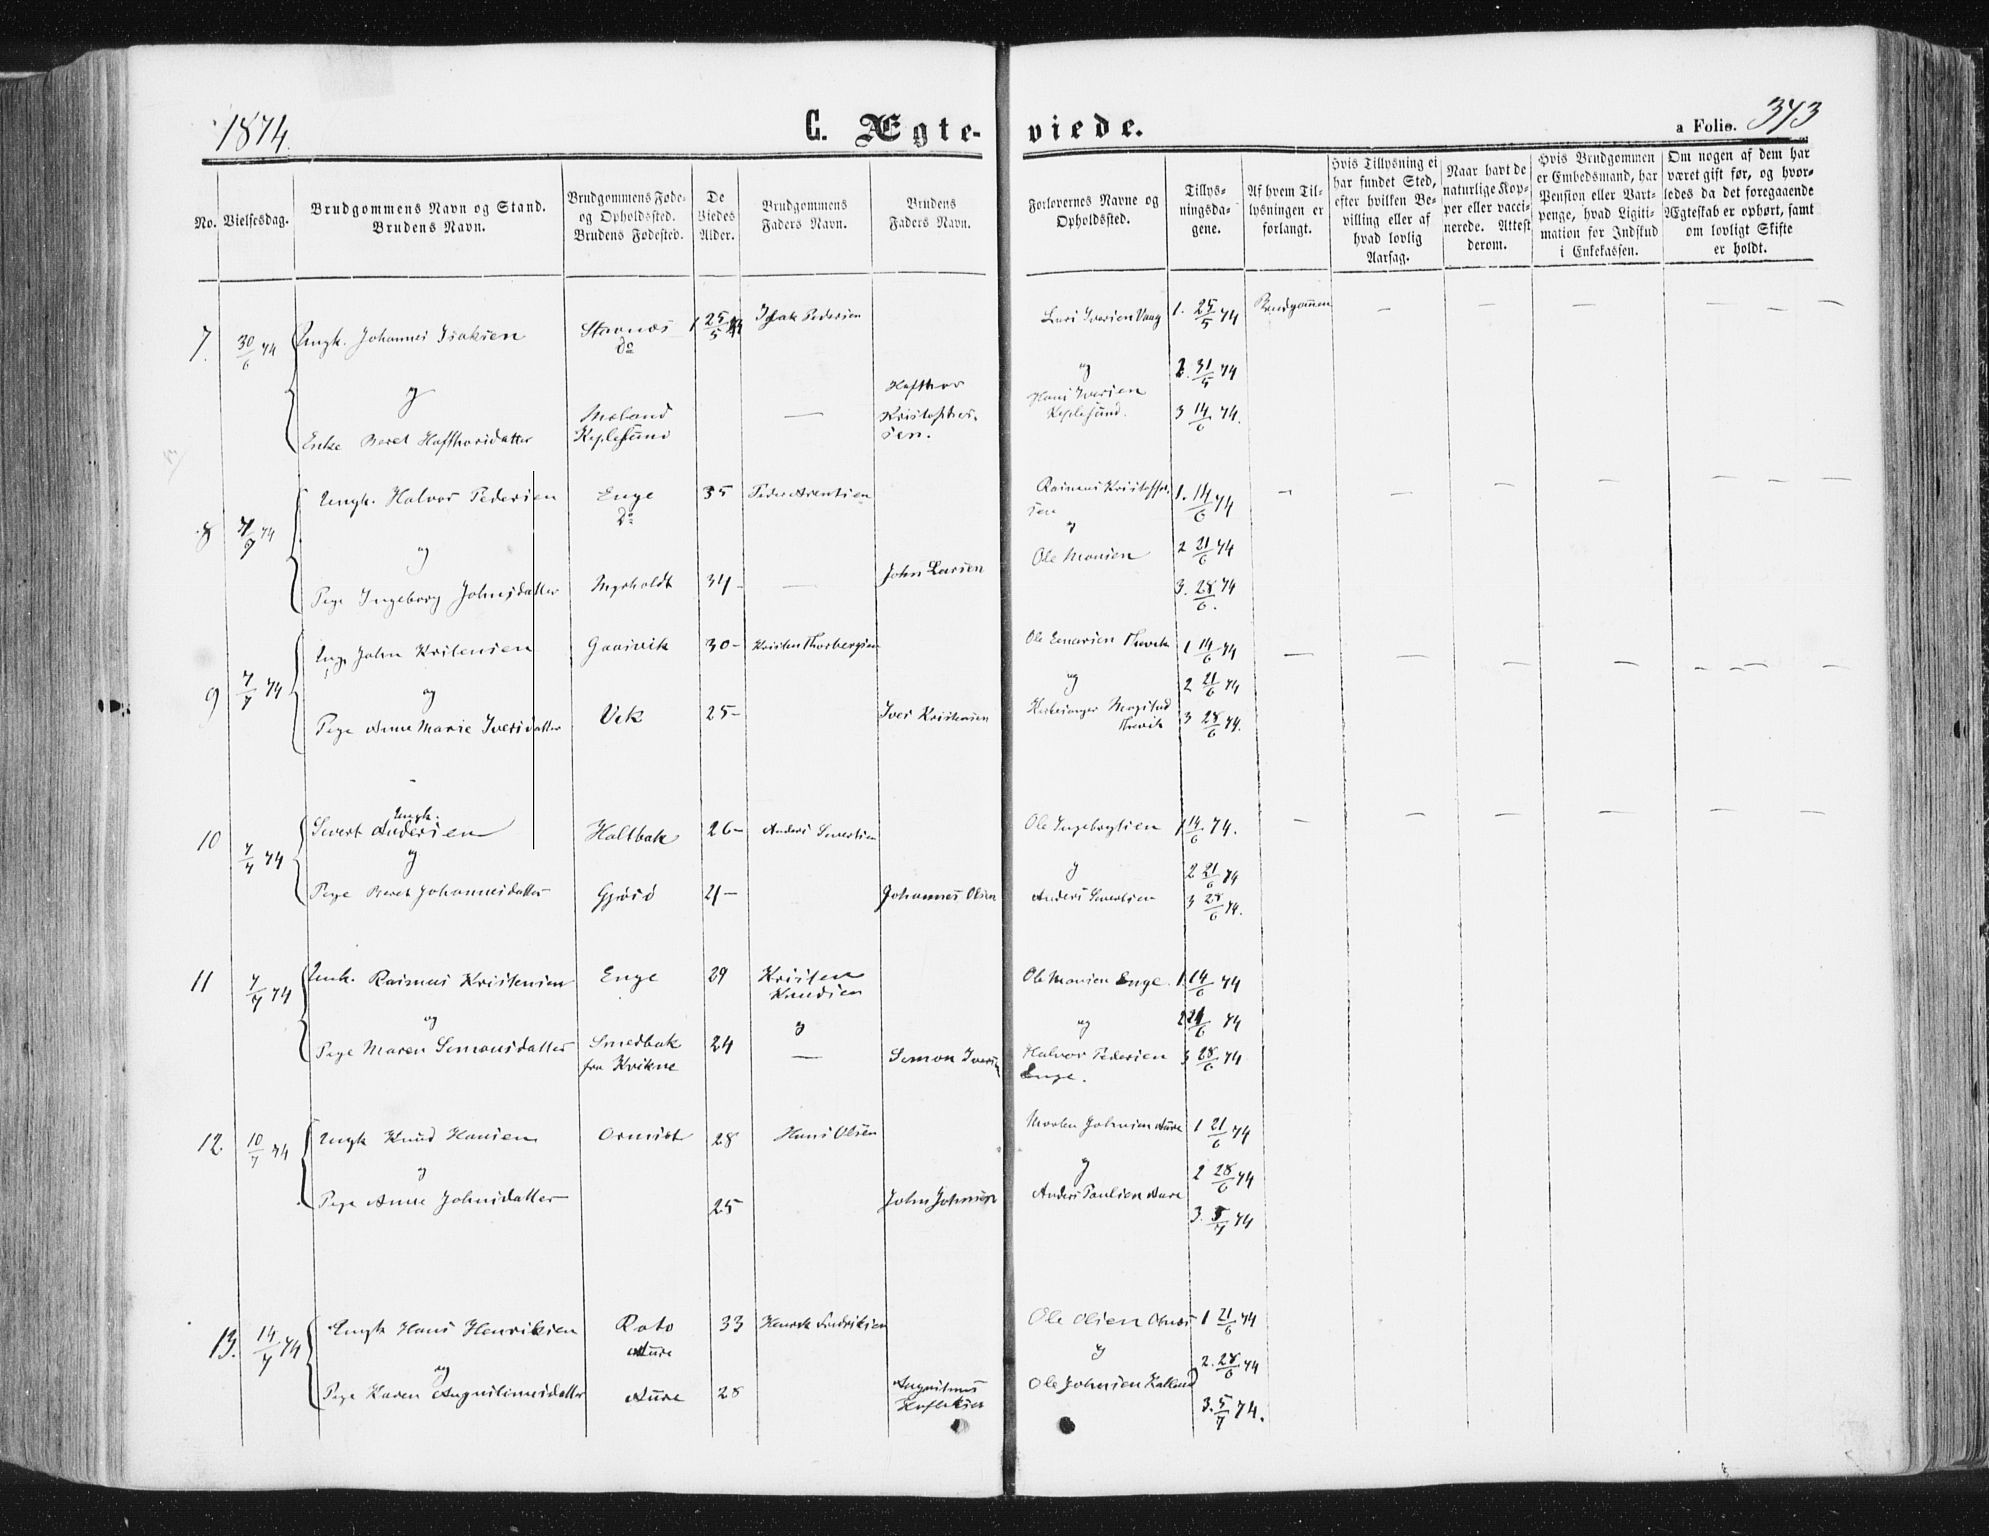 1874.
C. Ægte-
viede.
a Folio. 373
No.
Vielsesdag.
Brudgommens Navn og Stand.
Brudens Navn.
Brudgommens Føde-
og Opholdssted.
Brudens Fødested.
De
Viedes
Alder.
Brudgommens
Faders Navn.
Brudens
Faders Navn.
Forlovernes Navne og
Opholdssted.
Tillys-
ningsda-
gene.
Af hvem Til-
lysningen er
forlangt.
Hvis Tillysning ei
har fundet Sted,
efter hvilken Be-
villing eller af
hvad lovlig
Aarsag.
Naar havt de
naturlige Kop-
per eller vacci-
nerede. Attest
derom.
Hvis Brudgommen
er Embedsmand, har
Pension eller Vart-
penge, hvad Ligiti-
mation for Indskud
i Enkekassen.
Om nogen af dem har
været gift før, og hvor-
ledes da det foregaaende
Ægteskab er ophørt, samt
om lovligt Skifte
er holdt.
7. 30/6 74 Ungk. Johannes Isaksen Isak Pedersen Iversen Vaag 1. 25/5 74 Brudgommen
do
og og 2. 31/5 74
Hafthor
Kristoffer-
sen.
Hans Iversen
3 14/6 74.
Enke Beret Hafthorsdatter
8 7/7 74 Ungk. Halvor Pedersen Enge 35 Peder Arentsen Rasmus Kristoffer-
sen 1. 14/6 74
do
og og
Ole Monsen 2 21/6 74
Pige Ingeborg Johnsdatter Myrholdt 34 — John Larsen 3. 28/6 74
9 7/7 74 Ung. John Kristensen 30 Kristen Thorbergsen Ole 1 14/6 74
og og 2 21/6 74
Pige Anne Marie Iversdatter Vik 25 Iver Kristensen 3 28/6 74.
10 7/7 74 Ungk.
Sivert Andersen Holtbak 26 Anders Sivertsen Ole Ingebrigtsen 1 14/6 74.
og og 2 21/6 74
Pige Beret Johannesdatter Gjøsø 21 Johannes Olsen Anders Sivertsen 3 28/6 74.
11 7/7 74 Unk. Rasmus Kristensen Enge 29 Kristen
Knudsen Ole Monsen Enge. 1. 14/6 74
og og 2 21/6 74
Pige Maren Simonsdatter Smedbak
fra Kvikne 24 — Simon Iversen Halvor Pedersen
Enge. 3 28/6 74
12. 10/7 74 Ungk Knud Hansen 28 Hans Olsen Morten Johnsen Aure 1 21/6 74
og og 2 28/6 74
Pige Anne Johnsdatter 25 John Johnsen Anders Paulsen Aure 3. 5/7 74
13. 14/7 74 Ungk Hans Henriksen Roto
Aure 33 Henrik Fredriksen Ole Olsen 1 21/6 74
og og 2. 28/6 74
Pige Karen Augustinusdatter Aure 28 Augustinus Ole Johnsen 3. 5/7 74.